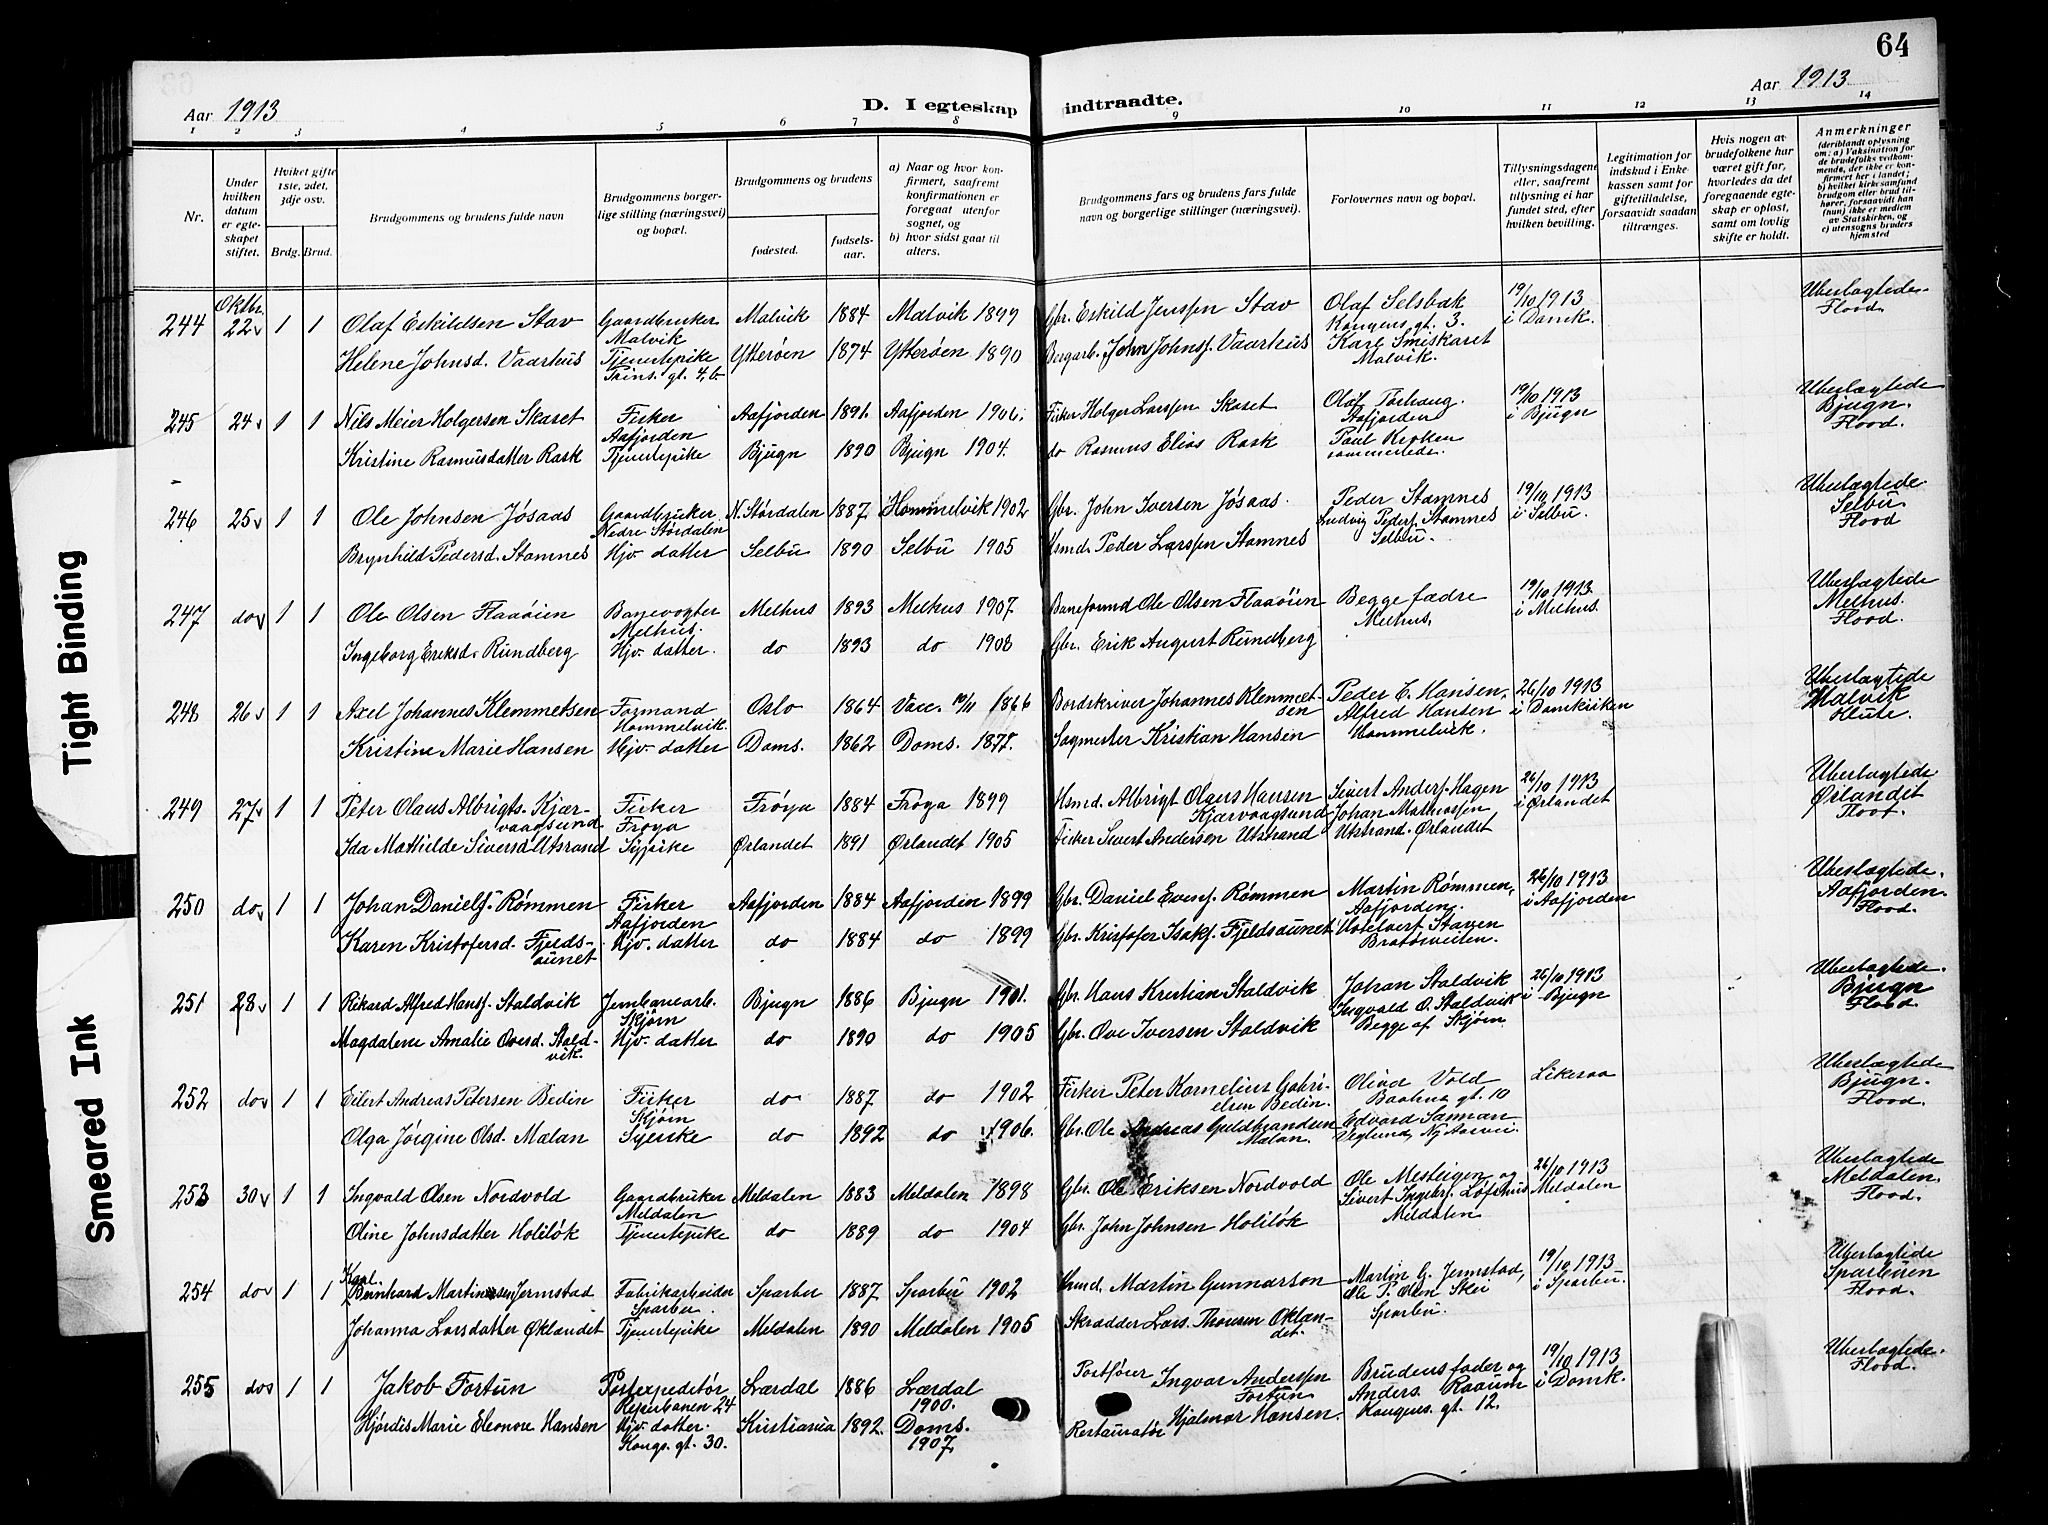 64
Aar 1913
D. I egteskap indtraadte.
Aar 1913
1 2 3 4 5 6 7 8 9 10 11 12 13 14
Nr.
Under hvilken datum er egteskapet stiftet.
Hvilket gifte 1ste, 2det, 3dje osv.
Brdg. Brud.
Brudgommens og brudens fulde navn
Brudgommens borgerlige stilling (næringsvei) og bopæl.
Brudgommens og brudens
fødested.
fødselsaar.
a) Naar og hvor konfirmert, saafremt konfirmationen er foregaat utenfor sognet, og
b) hvor sidst gaat til alters.
Brudgommens fars og brudens fars fulde navn og borgerlige stillinger (næringsvei).
Forlovernes navn og bopæl.
Tillysningsdagene eller, saafremt tillysning ei har fundet sted, efter hvilken bevilling.
Legitimation for indskud i Enkekassen samt for giftetilladelse, forsaavidt saadan tiltrænges.
Hvis nogen av brudefolkene har været gift før, hvorledes da det foregaaende egteskap er opløst, samt om lovlig skifte er holdt.
Anmerkninger (deriblandt oplysning om: a) Vaksination for de brudefolks vedkommende, der ikke er konfirmert her i landet; b) hvilket kirkesamfund brudgom eller brud tilhører, forsaavidt han (hun) ikke er medlem av Statskirken, og c) utensogns bruders hjemsted
244 Oktbr. 22 1 1 Olaf Eskildsen Stav Gaardbruker Malvik Malvik 1884 Malvik 1899 Gbr. Eskild Jenssen Stav Olaf Selsbak Kongens gt. 3. 19/10 1913 i Domk. Ubeslægtede. Flood.
Helene Johnsd. Vaarhus Tjenestepike Prins. gt. 4,b. Ytterøen 1874 Ytterøen 1890 Bergarb. John Johns. Vaarhus Karl Smiskaret Malvik.
245 24 1 1 Nils Meier Holgersen Skaset Fisker Aafjorden Aafjorden 1891. Aafjorden 1906. Fisker Holger Larssen Skaset Olaf Torhaug. Aafjorden 19/10 1913 i Bjugn Ubeslægtede Bjugn. Flood.
Kristine Rasmusdatter Rask Tjenestepike Bjugn 1890 Bjugn 1904. do Rasmus Elias Rask Paul sammesteds.
246 25 1 1 Ole Johnsen Jøsaas Gaardbruker Nedre Størdalen N. Størdalen 1887 Hommelvik 1902 Gbr. John Iversen Jøsaas. Peder Stamnes 19/10 1913 i Selbu. Ubeslægtede. Selbu. Flood
Brynhild Pedersd. Stamnes Hjv. datter Selbu 1890 Selbu 1905 Hsmd. Peder Larssen Stamnes Ludvig Peders. Stamnes Selbu.
247 do 1 1 Ole Olsen Flaaøien Banevogter Melhus. Melhus 1893 Melhus 1907. Baneformd Ole Olsen Flaaøien Begge fædre Melhus. 19/10 1913 i Melhus. Ubeslægtede Melhus. Flood.
Ingeborg Eriksd. Rundberg Hjv. datter. do 1893 do 1908 Gbr. Erik August Rundberg
248 26 1 1 Axel Johannes Klemmetsen Formand Hommelvik. Oslo 1864 Vacc. 10/11 1866 Bordskriver Johannes Klemmetsen Peder C. Hansen, 26/10 1913 i Domkirken Ubeslægtede Malvik Klute.
Kristine Marie Hansen Hjv. datter Doms. 1862 Doms. 1877. Sagmester Kristian Hansen Alfred Hansen Hommelvik.
249 27 1 1 Peter Olaus Albrigts. Kjærvaagsund Fisker Frøya Frøya 1884 Frøya 1899 Hsmd. Albrigt Olaus Hansen Kjærvaagsund Sivert Anders. Hagen 26/10 1913 i Ørlandet Ubeslægtede Ørlandet Flood.
Ida Mathilde Siversd. Utstrand Sypike Ørlandet 1891 Ørlandet 1905 Fisker Sivert Andersen Utstrand Johan Mathiassen Utstrand. Ørlandet
250 do 1 1 Johan Daniels. Rømmen Fisker Aafjorden Aafjorden 1884 Aafjorden 1899 Gbr. Daniel Evens. Rømmen Martin Rømmen, Aafjorden. 26/10 1913 i Aafjorden Ubeslægtede. Aafjorden. Flood.
Karen Kristofersd. Fjeldsaunet Hjv. datter do 1884 do 1899 Gbr. Kristofer Isaks. Fjeldsaunet Hotelvert Stavem Bratørveiten.
251 28 1 1 Rikard Alfred Hans. Staldvik Jernbanearb. Skjørn Bjugn 1886 Bjugn 1901. Gbr. Hans Kristian Staldvik Johan Staldvik 26/10 1913 i Bjugn Ubeslægtede. Bjugn Flood.
Magdalene Amalie Ovesd. Staldvik. Hjv. datter do 1890 do 1905 Gbr. Ove Iversen Staldvik Ingvald O. Staldvik Begge af Skjørn
252 do 1 1 Eilert Andreas Petersen Bedin Fisker Skjørn do 1887 do 1902 Fisker Peter Kornelius Gabrielsen Bedin. Oliver Vold Baahus gt. 10 Likesaa Ubeslægtede Bjugn. Flood.
Olga Jørgine Olsd. Malan Syerske do 1892 do 1906. Gbr. Ole Andreas Guldbrandsen Malan. Edvard
253 30 1 1 Ingvald Olsen Nordvold Gaardbruker Meldalen Meldalen 1883 Meldalen 1898 Gbr. Ole Eriksen Nordvold Ole og 26/10 1913 Meldalen Ubeslægtede Meldalen. Flood.
Oline Johnsdatter Holiløk Tjenestepike do 1889 do 1904 Gbr. John Johnsen Holiløk Sivert Meldalen
254 do 1 1 Karl Bernhard Martinussen Jermstad Fabrikarbeider Sparbu. Sparbu 1887 Sparbu 1902 Hsmd. Martin Gunnarson Martin G. Jermstad, 19/10 1913 i Sparbu. Ubeslægtede Sparbuen Flood.
Johanna Larsdatter Øklandet Tjenestepike Meldalen 1890 Meldalen 1905 Skradder Lars Thoresen Øklandet. Ole P. Olsen Skei Sparbu.
255 do 1 1 Jakob Fortun Postexpeditør Reperbanen 24 Lærdal 1886 Lærdal 1900. Postfører Ingvar Anderssen Fortun Brudens fader og 19/10 1913 i Domk. Ubeslægtede. Flood.
Hjørdis Marie Eleonore Hansen Hjv. datter. Kongs. gt. 30. Kristiania 1892. Doms. 1907 Restauratør Hjalmar Hansen. Anders Raaum Kongens. gt. 12.
Tight Binding
Smeared Ink